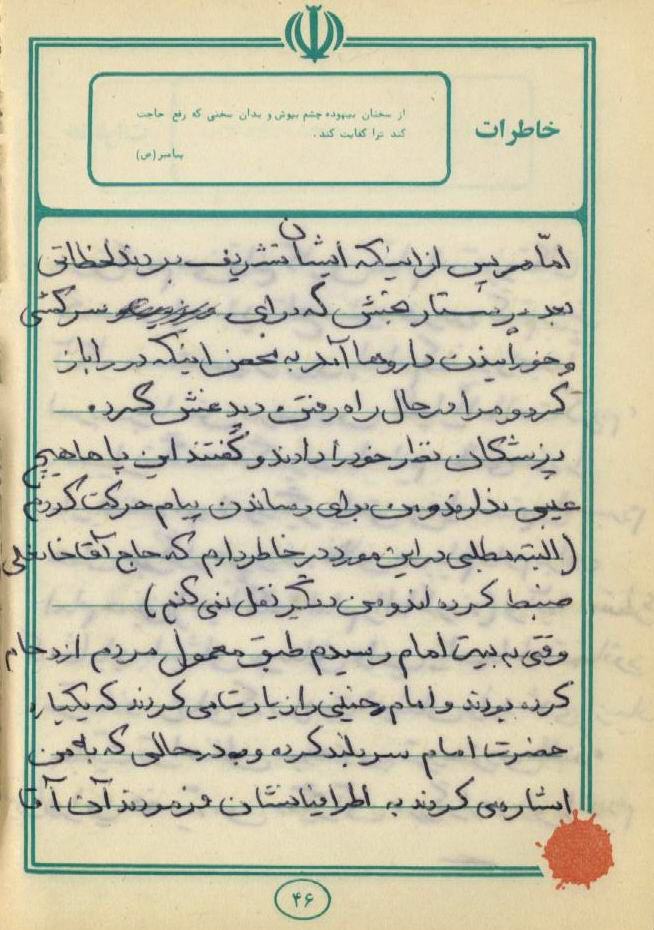 خاطرات
از سخنان بیهوده چشم بپوش و بدان سخنی که رفع حاجت
کند ترا کفایت کند.
پیامبر (ص)
امّا پس از اینکه ایشان تشریف بردند لحظاتی
بعد پرستار بخش که برای سرکشی
و خورانیدن داروها آمد به محض اینکه در را باز
کرد و مرا در حال راه رفتن دید غش کرد.
پزشکان نظر خود را دادند و گفتند این پاها هیچ
عیبی ندارند و من برای رساندن پیام حرکت کردم
(البته مطلبی در این مورد در خاطر دارم که حاج آقا
ضبط کرده اند و من دیگر نقل نمی کنم)
وقتی به بیت امام رسیدم طبق معمول مردم ازدحام
کرده بودند و امام خمینی را زیارت می کردند که یکباره
حضرت امام سر بلند کرده و در حالی که به من
اشاره می کردند به اطرافیانشان فرمودند آن آقا
۴۶